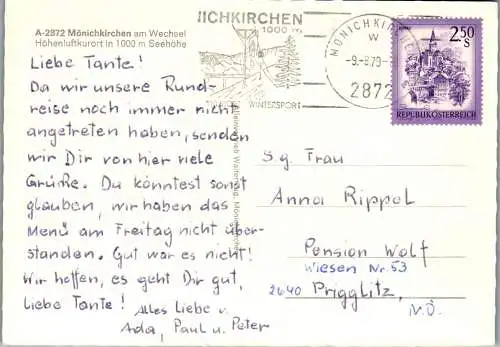 A-2872 Mönichkirchen am Wechsel
Höhenluftkurort in 1000 m Seehöhe
Liebe Tante!
Da wir unsere Rund-
reise noch immer nicht
angetreten haben, senden
wir Dir von hier viele
Grüße. Du könntest sonst
glauben, wir haben das
Menü am Freitag nicht über-
standen. Gut war es nicht!
Wir hoffen, es geht Dir gut,
liebe Tante! Alles Liebe v.
Ada, Paul u. Peter
IICHKIRCHEN
1000 m
WINTERSPORT
MÖNICHKIRCHEN
W
2872
2.50
S
REPUBLIK ÖSTERREICH
S.g. Frau
Anna Rippel
Pension Wolf
Wiesen Nr. 53
2640 Prigglitz,
N.Ö.